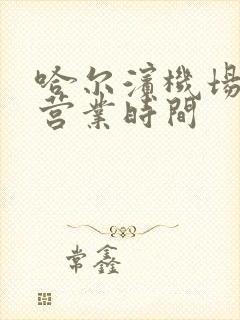 哈尔濱機場
营業時間
常鑫